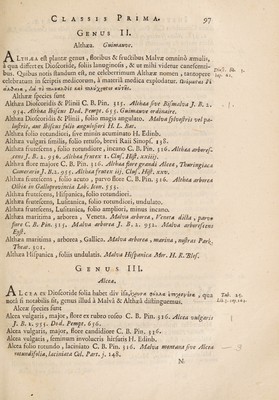 CLASSIS PRIMA. 97
GENUS II.
Althæa. Guimauve.
ALTHÆA est plantæ genus, floribus & fructibus Malvæ omninò æmulis,
à quâ differt ex Dioscoride, foliis lanuginosis, & ut mihi videtur canescenti-
bus. Quibus notis standum est, ne celeberrimum Althææ nomen, tantopere
celebratum in scriptis medicorum, à materiâ medicâ explodatur.
Althææ species sunt
Althæa Dioscoridis & Plinii C. B. Pin. 315. Althæa sive Bismalva J. B. 2.
954. Althæa Ibiscus Dod. Pempt. 655. Guimauve ordinaire.
Althæa Dioscoridis & Plinii, folio magis angulato. Malva sylvestris vel pa-
lustris, aut Ibiscus folio angulosiori H. L. Bat.
Althæa folio rotundiori, sive minùs acuminato H. Edinb.
Althæa vulgari similis, folio retuso, brevi Raii Sinopf. 138.
Althæa frutescens, folio rotundiore, incano C. B. Pin. 316. Althæa arbores-
cens J. B. 2. 956. Althæa frutex 1. Clus. Hist. xxiiij.
Althæa flore majore C. B. Pin. 316. Althæa flore grandi Alcea, Thuringiaca
Camerarii J. B. 2. 955. Althæa frutex iij, Clus. Hist. xxv.
Althæa frutescens, folio acuto, parvo flore C. B. Pin. 316. Althæa arborea
Olbiæ in Galloprovinciâ Lob. Icon. 555.
Althæa frutescens, Hispanica, folio rotundiori.
Althæa frutescens, Lusitanica, folio rotundiori, undulato.
Althæa frutescens, Lusitanica, folio ampliori, minùs incano.
Althæa maritima, arborea, Veneta. Malva arborea, Veneta dicta, parvo
flore C. B. Pin. 315. Malva arborea J. B. 2. 952. Malva arborescens
Eyst.
Althæa maritima, arborea, Gallica. Malva arborea, marina, nostras Park.
Theat. 301.
Althæa Hispanica, foliis undulatis. Malva Hispanica Mor. H. R. Bles.
GENUS III.
Alcea.
ALCEA ex Dioscoride folia habet divisa, quâ
notâ si notabilis sit, genus illud à Malvâ & Althæâ distinguemus.
Alceæ species sunt
Alcea vulgaris, major, flore ex rubro roseo C. B. Pin. 316. Alcea vulgaris
J. B. 2. 953. Dod. Pempt. 656.
Alcea vulgaris, major, flore candidiore C. B. Pin. 316.
Alcea vulgaris, seminum involucris hirsutis H. Edinb.
Alcea folio rotundo, laciniato C. B. Pin. 316. Malva montana sive Alcea
rotundifolia, laciniata Col. Part. j. 148.
N